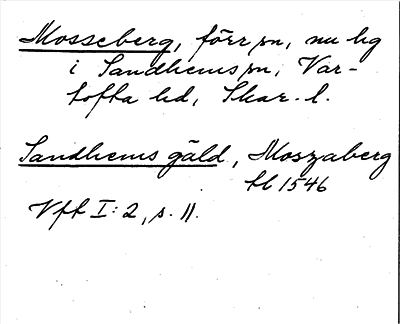 Mosseberg, förr sn, nu hg
i Sandhems sn, Var-
tofta hd, Skar. l.
Sandhems gäld, Moszaberg
tl 1546
Vft I: 2, s. 11.